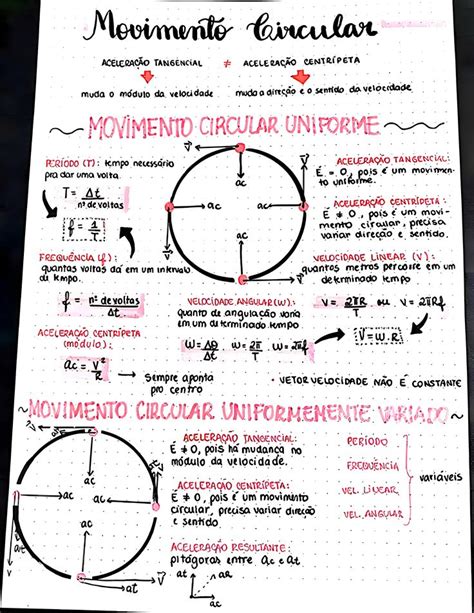 Movimento Circular
ACELERAÇÃO TANGENCIAL ≠ ACELERAÇÃO CENTRÍPETA
muda o módulo da velocidade
muda a direção e o sentido da velocidade
~MOVIMENTO CIRCULAR UNIFORME~
PERÍODO (T): tempo necessário
pra dar uma volta.
T = Δt / nº de voltas
f = 1/T
FREQUÊNCIA (f):
quantas voltas dá em um intervalo
de tempo.
f = nº de voltas / Δt
ACELERAÇÃO CENTRÍPETA
(módulo):
ac = V²/R → Sempre aponta
pro centro
V
ac
V
ac
ac
V
ac
V
ACELERAÇÃO TANGENCIAL:
É = 0, pois é um movimen-
to uniforme.
ACELERAÇÃO CENTRÍPETA:
É ≠ 0, pois é um movi-
mento circular, precisa
variar direção e sentido.
VELOCIDADE LINEAR (V):
quantos metros percorre em um
determinado tempo
V = 2πR/T ou V = 2πRf
V = W.R
VELOCIDADE ANGULAR (W):
quanto de angulação varia
em um determinado tempo
W = Δθ/Δt W = 2π/T W = 2πf
• VETOR VELOCIDADE NÃO É CONSTANTE
~MOVIMENTO CIRCULAR UNIFORMEMENTE VARIADO~
V
at
ac
ac
ac
at
V
at
V
ac
at
V
ACELERAÇÃO TANGENCIAL:
É ≠ 0, pois há mudança no
módulo da velocidade.
ACELERAÇÃO CENTRÍPETA:
É ≠ 0, pois é um movimento
circular, precisa variar direção
e sentido.
ACELERAÇÃO RESULTANTE:
pitágoras entre ac e at
at
aR
ac
PERÍODO
FREQUÊNCIA
VEL. LINEAR
VEL. ANGULAR
variáveis